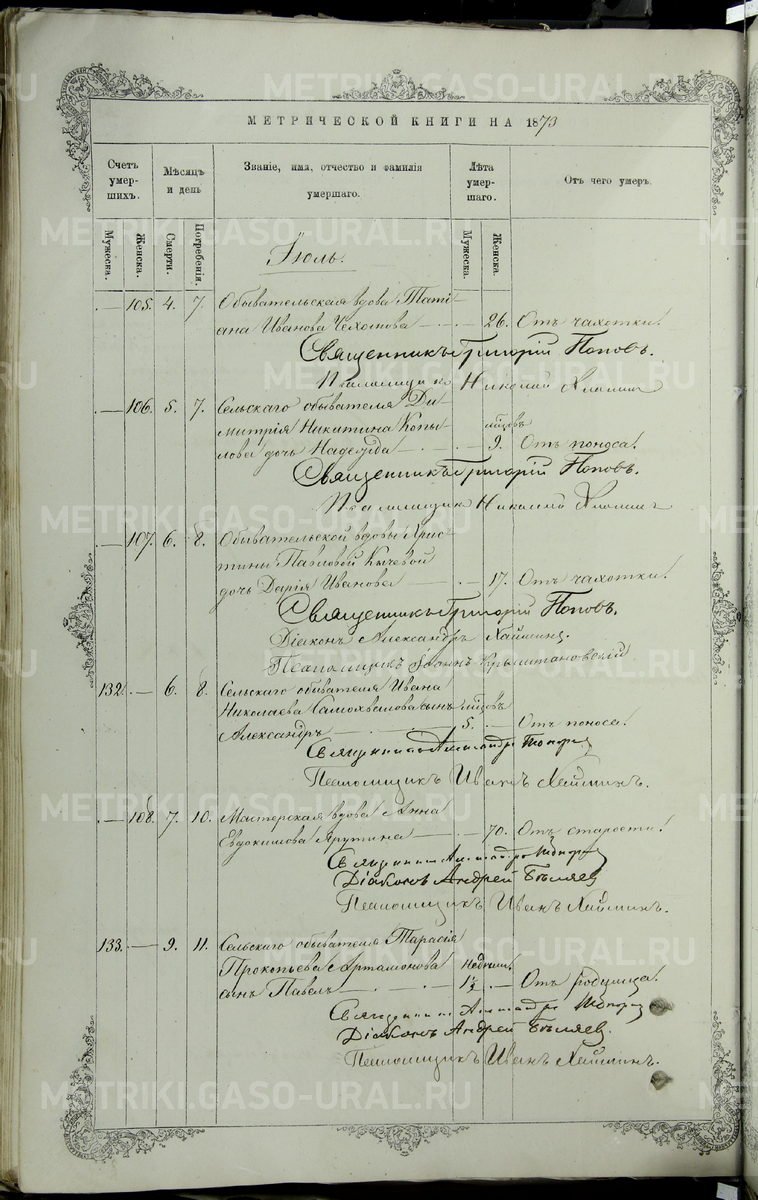 METRIKI.GASO-URAL.RU
МЕТРИЧЕСКОЙ КНИГИ НА 1873
Счетъ умершихъ.
Мѣсяцъ и день
Званіе, имя, отчество и фамилія умершаго.
Лѣта умершаго.
Отъ чего умеръ.
Мужеска. Женска. Смерти. Погребенія. Мужеска. Женска.
Іюль.
— 105. 4. 7. Обывательская вдова Тати-
ана Иванова — 26. Отъ чахотки.
Священникъ Григорій Поповъ.
Псаломщикъ Николай
— 106. 5. 7. Сельскаго обывателя Ди-
митрія Никитина Копы- мѣсяцовъ
лова дочь Надежда — 9. Отъ поноса.
Священникъ Григорій Поповъ.
Псаломщикъ Николай
— 107. 6. 8. Обывательской вдовы Хрис-
тины Павловой
дочь Дарія Иванова — 17. Отъ чахотки.
Священникъ Григорій Поповъ.
Діаконъ Александръ Хайминъ.
Псаломщикъ Іоаннъ
132. — 6. 8. Сельскаго обывателя Ивана
Николаева Самохвалова сынъ мѣсяцовъ
Александръ — 5. — Отъ поноса.
Священникъ Александръ
Псаломщикъ Иванъ Хайминъ.
— 108. 7. 10. Мастерская вдова Анна
Евдокимова — 70. Отъ старости.
Священникъ Александръ
Діаконъ Андрей Бѣляев
Псаломщикъ Иванъ Хайминъ.
133. — 9. 11. Сельскаго обывателя Тарасія
Прокопьева Артамонова
сынъ Павелъ — 1½ — Отъ родимца.
Священникъ Александръ
Діаконъ Андрей Бѣляев.
Псаломщикъ Иванъ Хайминъ.